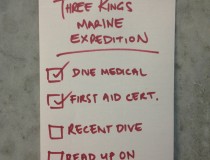 THREE KINGS
MARINE
EXPEDITION
DIVE MEDICAL
FIRST AID CERT.
RECENT DIVE
READ UP ON